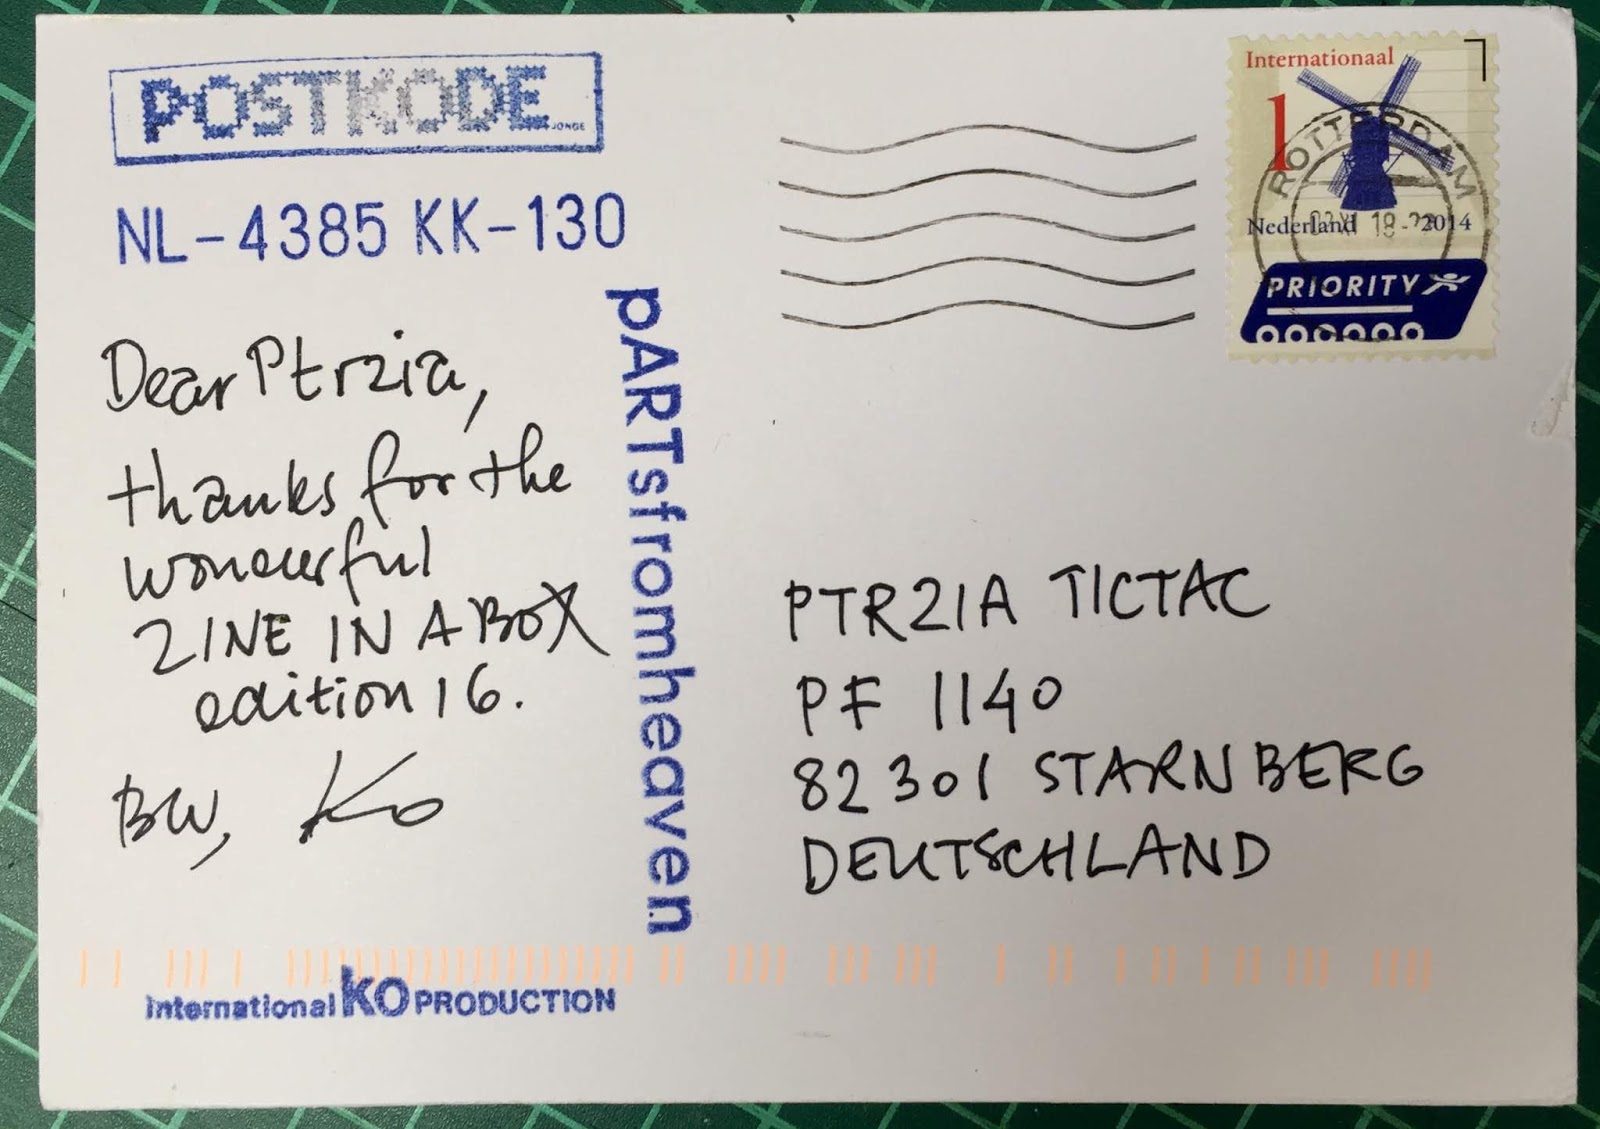 POSTKODE
JONGE
NL-4385 KK-130
Dear Ptrzia,
thanks for the
wonderful
ZINE IN A BOX
edition 16.
BW, Ko
pARTsfromheaven
international KO PRODUCTION
Internationaal
1
ROTTERDAM
Nederland 2014
PRIORITY
PTRZIA TICTAC
PF 1140
82301 STARNBERG
DEUTSCHLAND